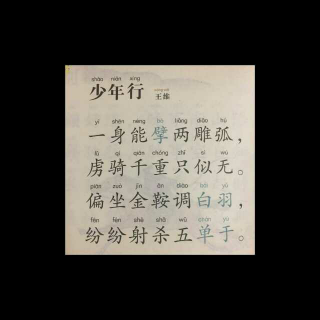 shào nián xíng
少年行 王维
yì shēn néng bò liǎng diāo hú
一身能擘两雕弧，
lǔ qí qiān chóng zhǐ sì wú
虏骑千重只似无。
piān zuò jīn ān diào bái yǔ
偏坐金鞍调白羽，
fēn fēn shè shā wǔ chán yú
纷纷射杀五单于。